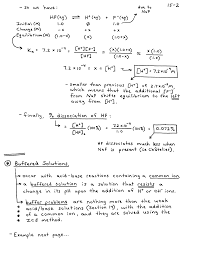 15-2
- So we have:
due to NaF
HF(aq) ⇌ H⁺(aq) + F⁻(aq)
Initial (M) 1.0 0 1.0
Change (M) -x +x +x
Equilibrium (M) (1.0-x) x (1.0+x)
Ka = 7.2×10⁻⁴ = [H⁺][F⁻] / [HF] = (x)(1.0+x) / (1.0-x) ≈ x(1.0) / (1.0)
7.2×10⁻⁴ = x = [H⁺] [H⁺] = 7.2×10⁻⁴ M
- Smaller than previous [H⁺] of 2.7×10⁻² M,
which means that the additional [F⁻]
from NaF shifts equilibrium to the left
away from [H⁺].
- Finally, % dissociation of HF:
[H⁺] / [HF] (100%) = 7.2×10⁻⁴ / 1.0 (100) = 0.072%
HF dissociates much less when
NaF is present (Le Châtelier).
Buffered Solutions
- occur with acid-base reactions containing a common ion.
- a buffered solution is a solution that resists a
change in its pH upon the addition of H⁺ or OH⁻ ions.
- buffer problems are nothing more than the weak
acid/base solutions (Section 14), with the addition
of a common ion, and they are solved using the
ICE method.
- Example next page...